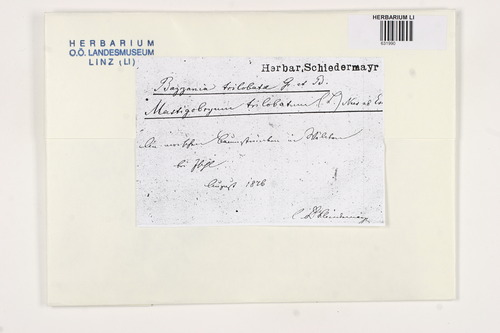 HERBARIUM
O.Ö. LANDESMUSEUM
LINZ (LI)
HERBARIUM LI
Herbar. Schiedermayr
Bazzania trilobata G. et B.
Mastigobryum trilobatum (L.) Nees ab Es
An morschen Baumstrünken in Wäldern
bei Ischl
August 18
C. Schiedermayr